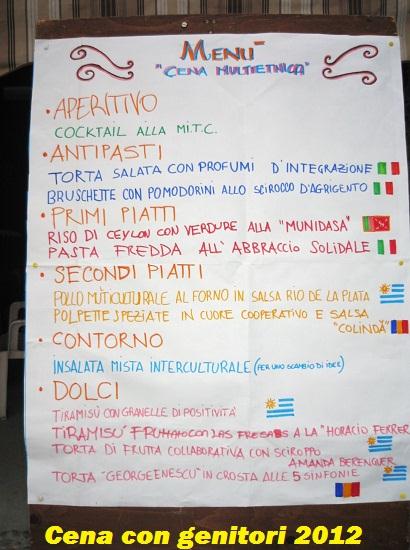 MENÙ
"CENA MULTIETNICA"
• APERITIVO
COCKTAIL ALLA MI.T.C.
• ANTIPASTI
TORTA SALATA CON PROFUMI D'INTEGRAZIONE
BRUSCHETTE CON POMODORINI ALLO SCIROCCO D'AGRIGENTO
• PRIMI PIATTI
RISO DI CEYLON CON VERDURE ALLA "MUNIDASA"
PASTA FREDDA ALL'ABBRACCIO SOLIDALE
• SECONDI PIATTI
POLLO MÙTICULTURALE AL FORNO IN SALSA RIO DE LA PLATA
POLPETTE SPEZIATE IN CUORE COOPERATIVO E SALSA
"COLINDĂ"
• CONTORNO
INSALATA MISTA INTERCULTURALE (PER UNO SCAMBIO DI IDEE)
• DOLCI
TIRAMISÙ CON GRANELLE DI POSITIVITÀ
TIRAMISÙ CON LAS FRESAS A LA "HORACIO FERRER
TORTA DI FRUTTA COLLABORATIVA CON SCIROPPO
AMANDA BERENGUER
TORTA "GEORGE ENESCU" IN CROSTA ALLE 5 SINFONIE
Cena con genitori 2012